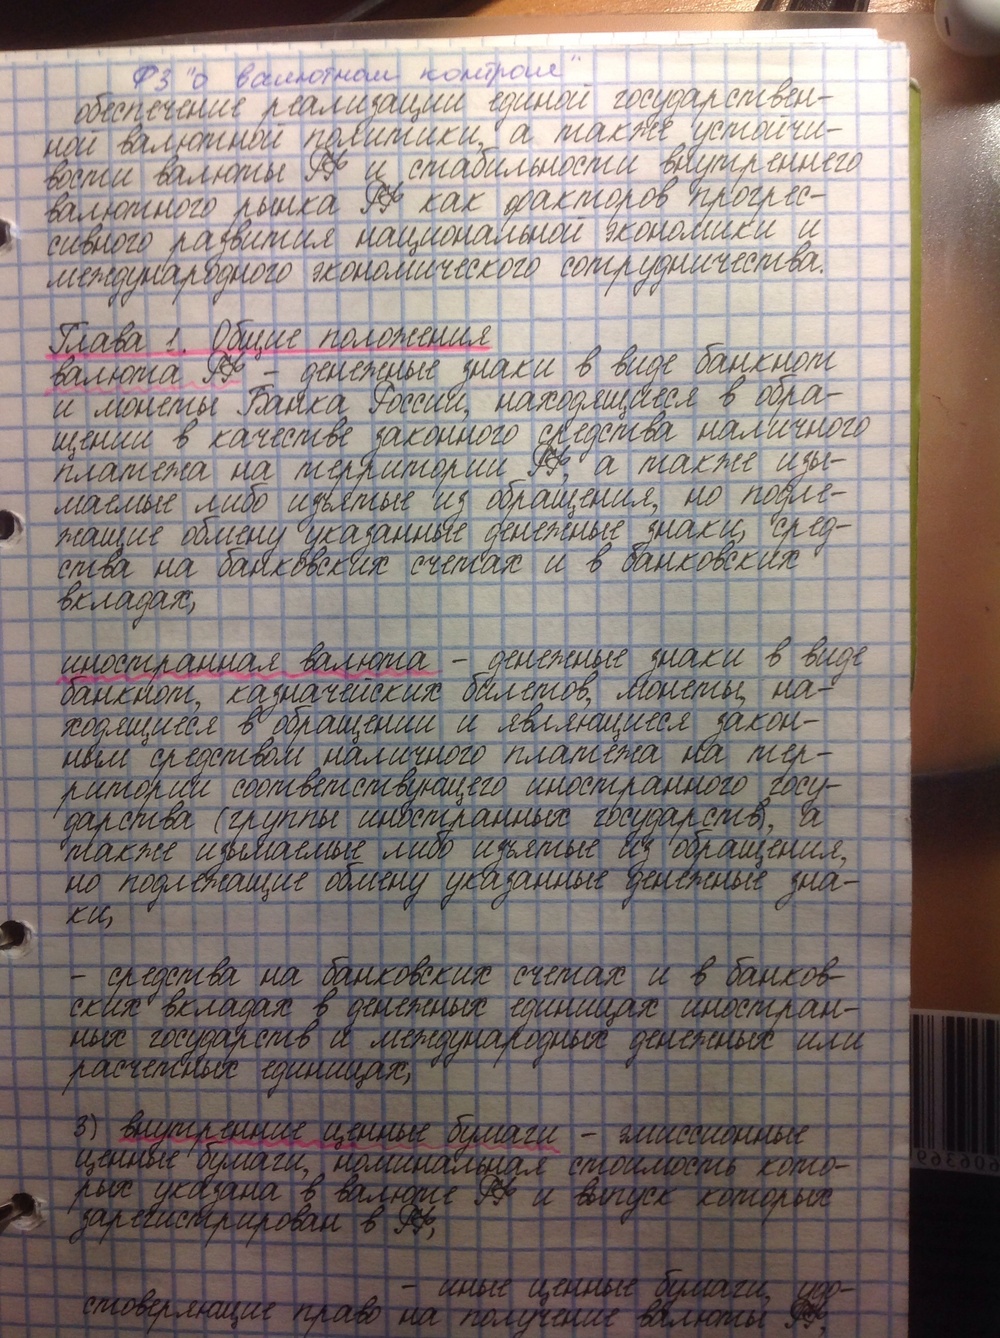 ФЗ "О валютном контроле"
обеспечение реализации единой государствен-
ной валютной политики, а также устойчи-
вости валюты РФ и стабильности внутреннего
валютного рынка РФ как факторов прогрес-
сивного развития национальной экономики и
международного экономического сотрудничества.
Глава 1. Общие положения
валюта РФ - денежные знаки в виде банкнот
и монеты Банка России, находящиеся в обра-
щении в качестве законного средства наличного
платежа на территории РФ, а также изы-
маемые либо изъятые из обращения, но подле-
жащие обмену указанные денежные знаки, сред-
ства на банковских счетах и в банковских
вкладах,
иностранная валюта - денежные знаки в виде
банкнот, казначейских билетов, монеты, на-
ходящиеся в обращении и являющиеся закон-
ным средством наличного платежа на тер-
ритории соответствующего иностранного госу-
дарства (группы иностранных государств), а
также изымаемые либо изъятые из обращения,
но подлежащие обмену указанные денежные зна-
ки,
- средства на банковских счетах и в банков-
ских вкладах в денежных единицах иностран-
ных государств и международных денежных или
расчетных единицах,
3) внутренние ценные бумаги - эмиссионные
ценные бумаги, номинальная стоимость кото-
рых указана в валюте РФ и выпуск которых
зарегистрирован в РФ,
- иные ценные бумаги, удо-
стоверяющие право на получение валюты РФ,